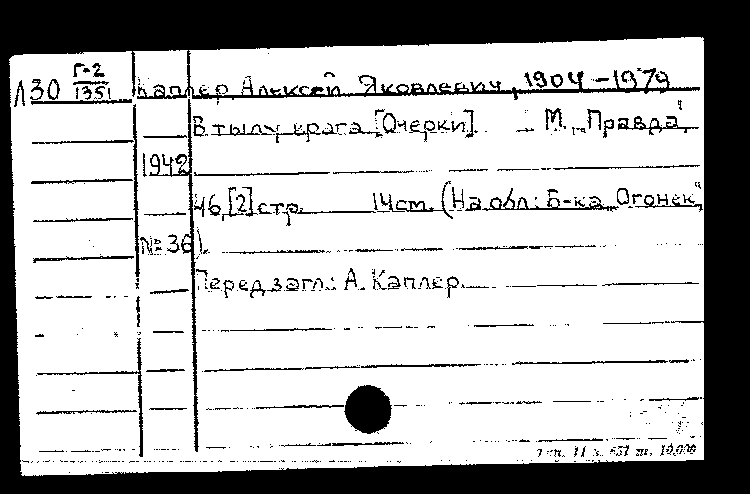 Л30 Г-2/1351 Каплер, Алексей Яковлевич, 1904-1979
В тылу врага [Очерки] _ М. "Правда",
1942
46, [2] стр. 14 см. (На обл.: Б-ка "Огонек",
№ 36).
Перед загл.: А. Каплер.
10.000